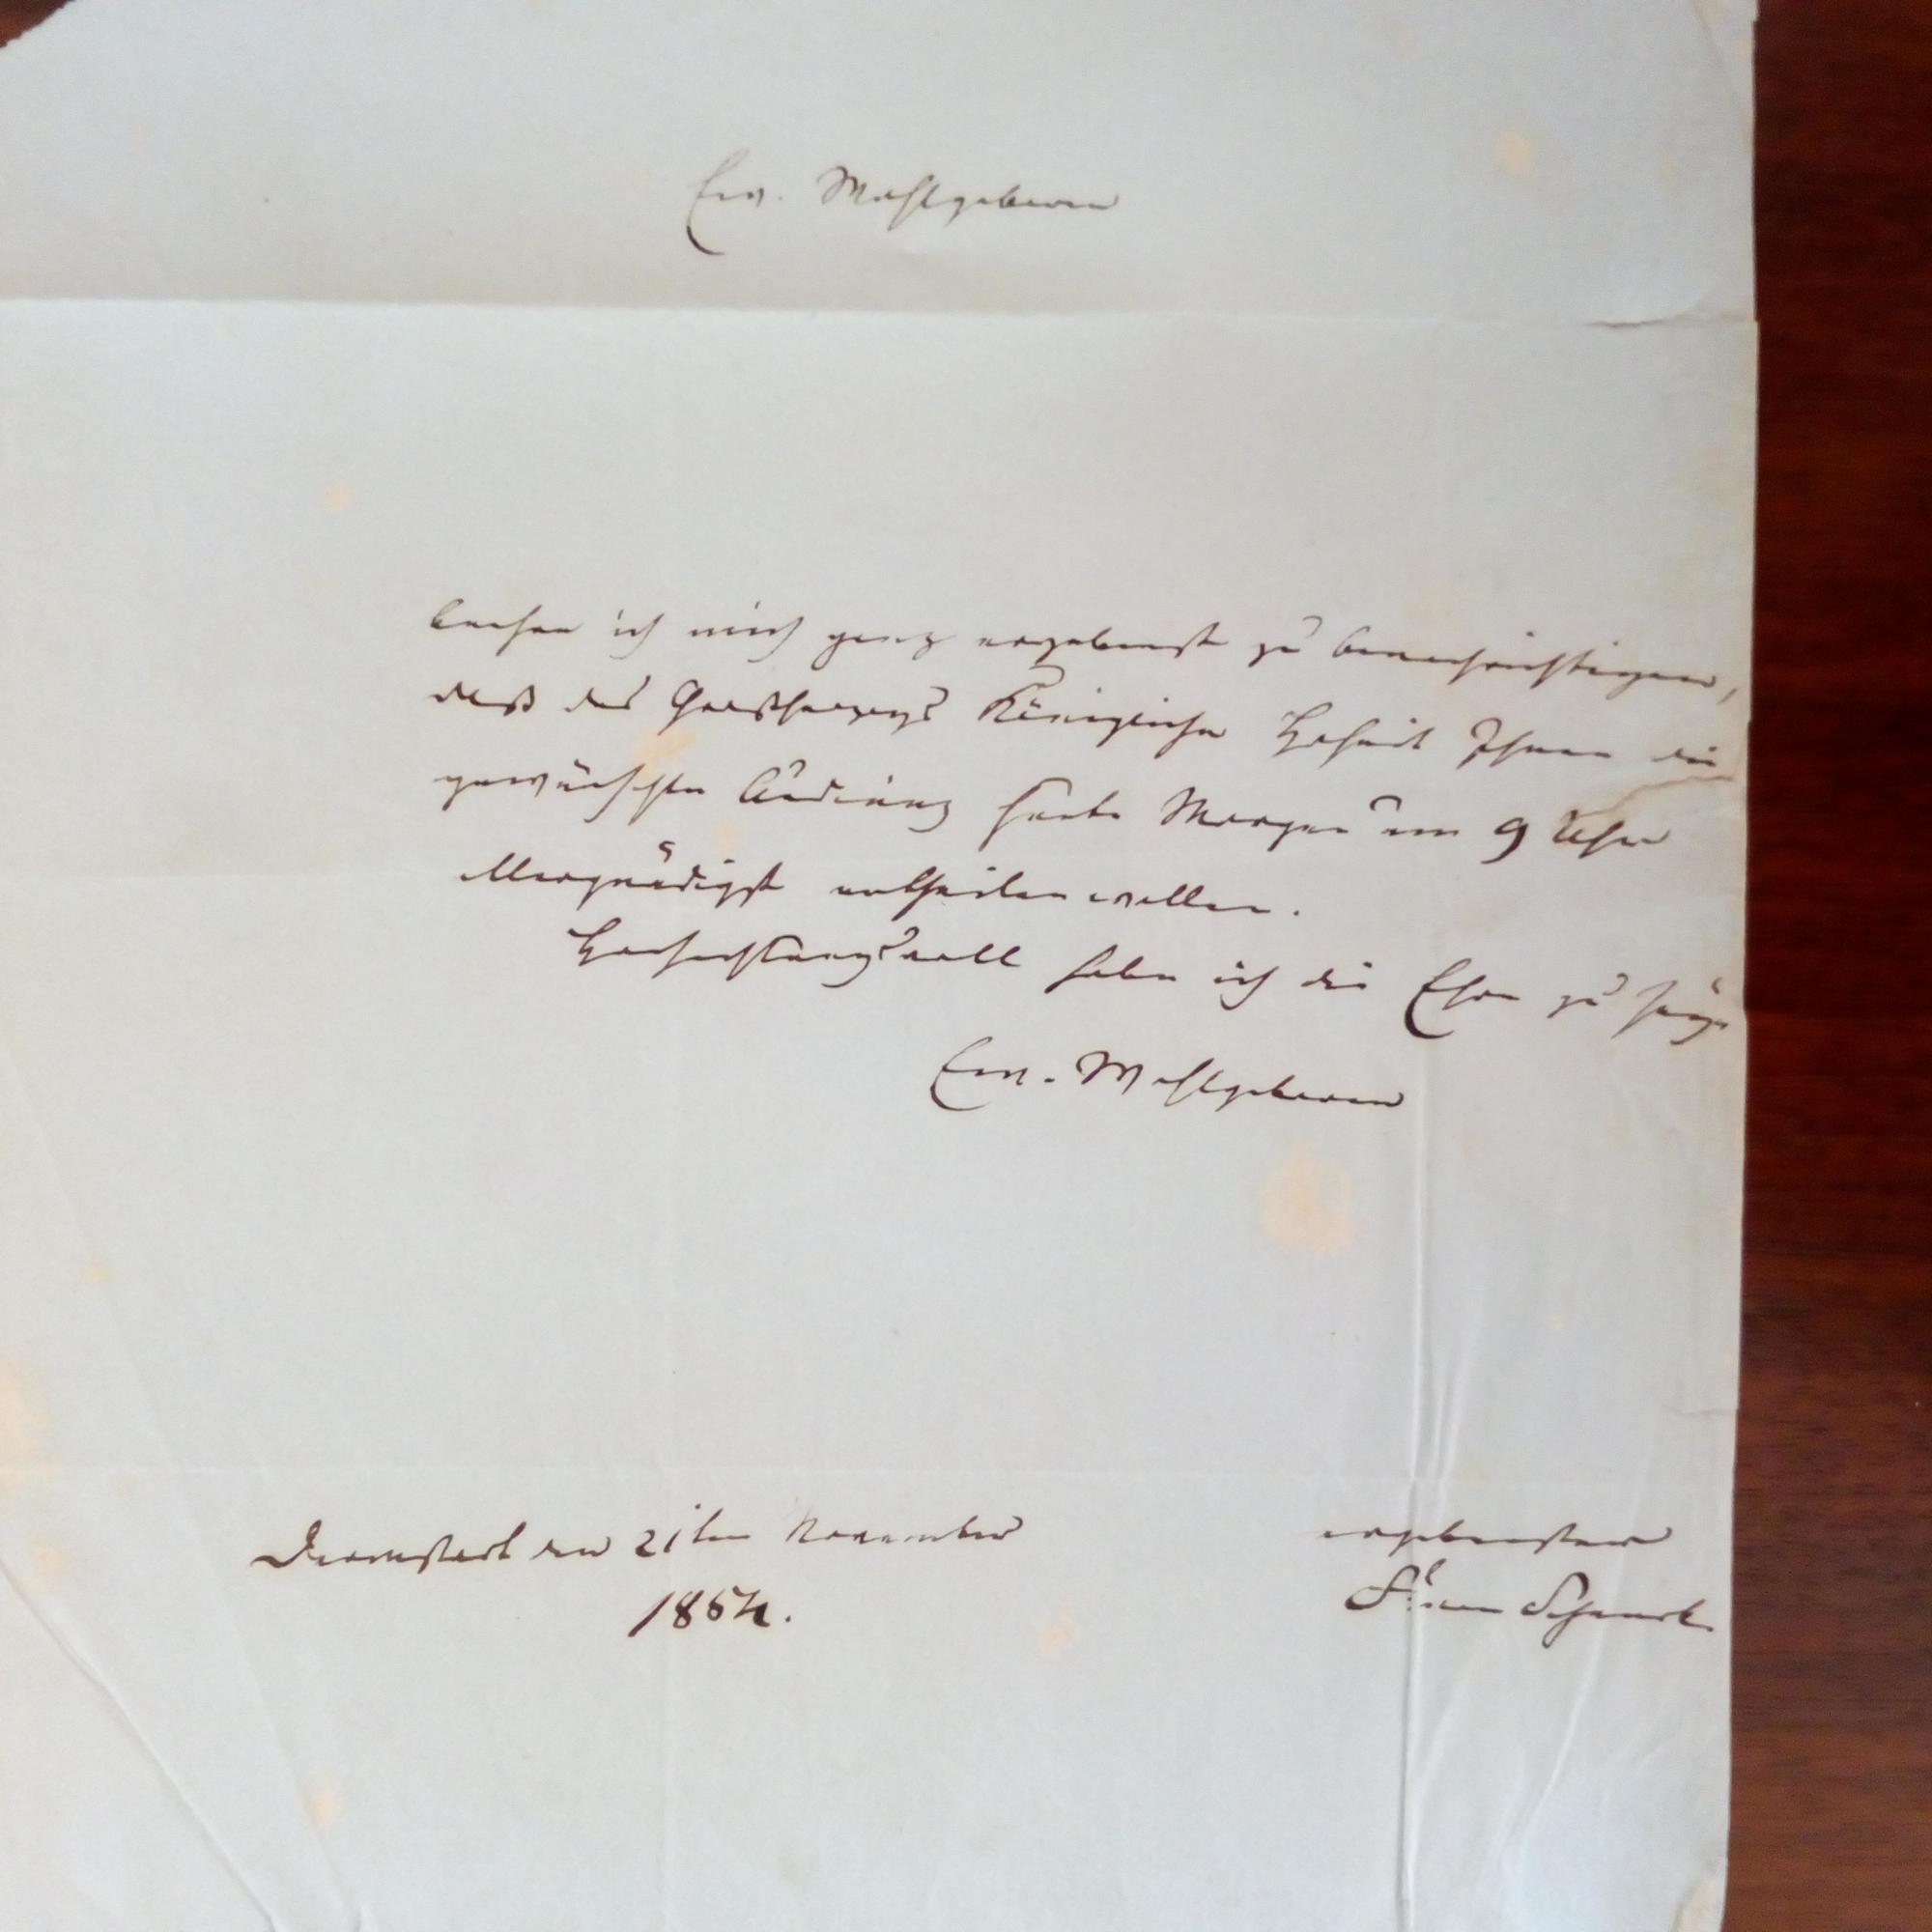 Ew. Wohlgeboren
beehre ich mich ganz ergebenst zu benachrichtigen,
daß des Großherzogs Königliche Hoheit Ihnen die
gewünschte Audienz heute Morgen um 9 Uhr
allergnädigst ertheilen wollen.
Hochachtungsvoll habe ich die Ehre zu seyn
Ew. Wohlgeboren
ergebenster
Darmstadt den 21ten November
1854.
Schenck